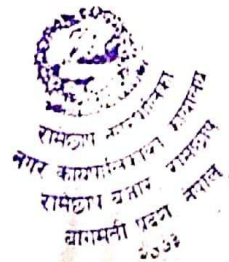 रामेछाप नगरपालिका
नगर कार्यपालिकाको कार्यालय
रामेछाप बजार रामेछाप
बागमती प्रदेश नेपाल
२०७३